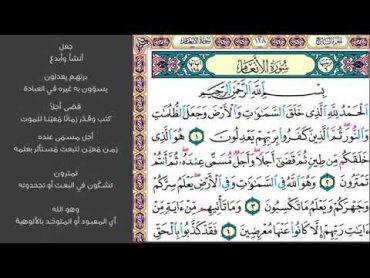 سورة الأنعام
١٢٨
الجزء السابع
سُورَةُ الأَنْعَامِ
بِسْمِ اللَّهِ الرَّحْمَٰنِ الرَّحِيمِ
الْحَمْدُ لِلَّهِ الَّذِي خَلَقَ السَّمَاوَاتِ وَالْأَرْضَ وَجَعَلَ الظُّلُمَاتِ
وَالنُّورَ ثُمَّ الَّذِينَ كَفَرُوا بِرَبِّهِمْ يَعْدِلُونَ ١ هُوَ الَّذِي
خَلَقَكُم مِّن طِينٍ ثُمَّ قَضَىٰ أَجَلًا وَأَجَلٌ مُّسَمًّى عِندَهُ ثُمَّ أَنتُمْ
تَمْتَرُونَ ٢ وَهُوَ اللَّهُ فِي السَّمَاوَاتِ وَفِي الْأَرْضِ يَعْلَمُ سِرَّكُمْ
وَجَهْرَكُمْ وَيَعْلَمُ مَا تَكْسِبُونَ ٣ وَمَا تَأْتِيهِم مِّنْ آيَةٍ مِّنْ
آيَاتِ رَبِّهِمْ إِلَّا كَانُوا عَنْهَا مُعْرِضِينَ ٤ فَقَدْ كَذَّبُوا بِالْحَقِّ
جعل
أنشأ وأبدع
بربّهم يعدلون
يسوّون به غيره في العبادة
قضى أجلاً
كتب وقدّر زمانًا معيّنا للموت
أجل مسمى عنده
زمن معيّن للبعث مُستأثر بعلمه
تمترون
تشكّون في البعث أو تجحدونه
وهو الله
أي المعبود أو المتوحّد بالألوهية